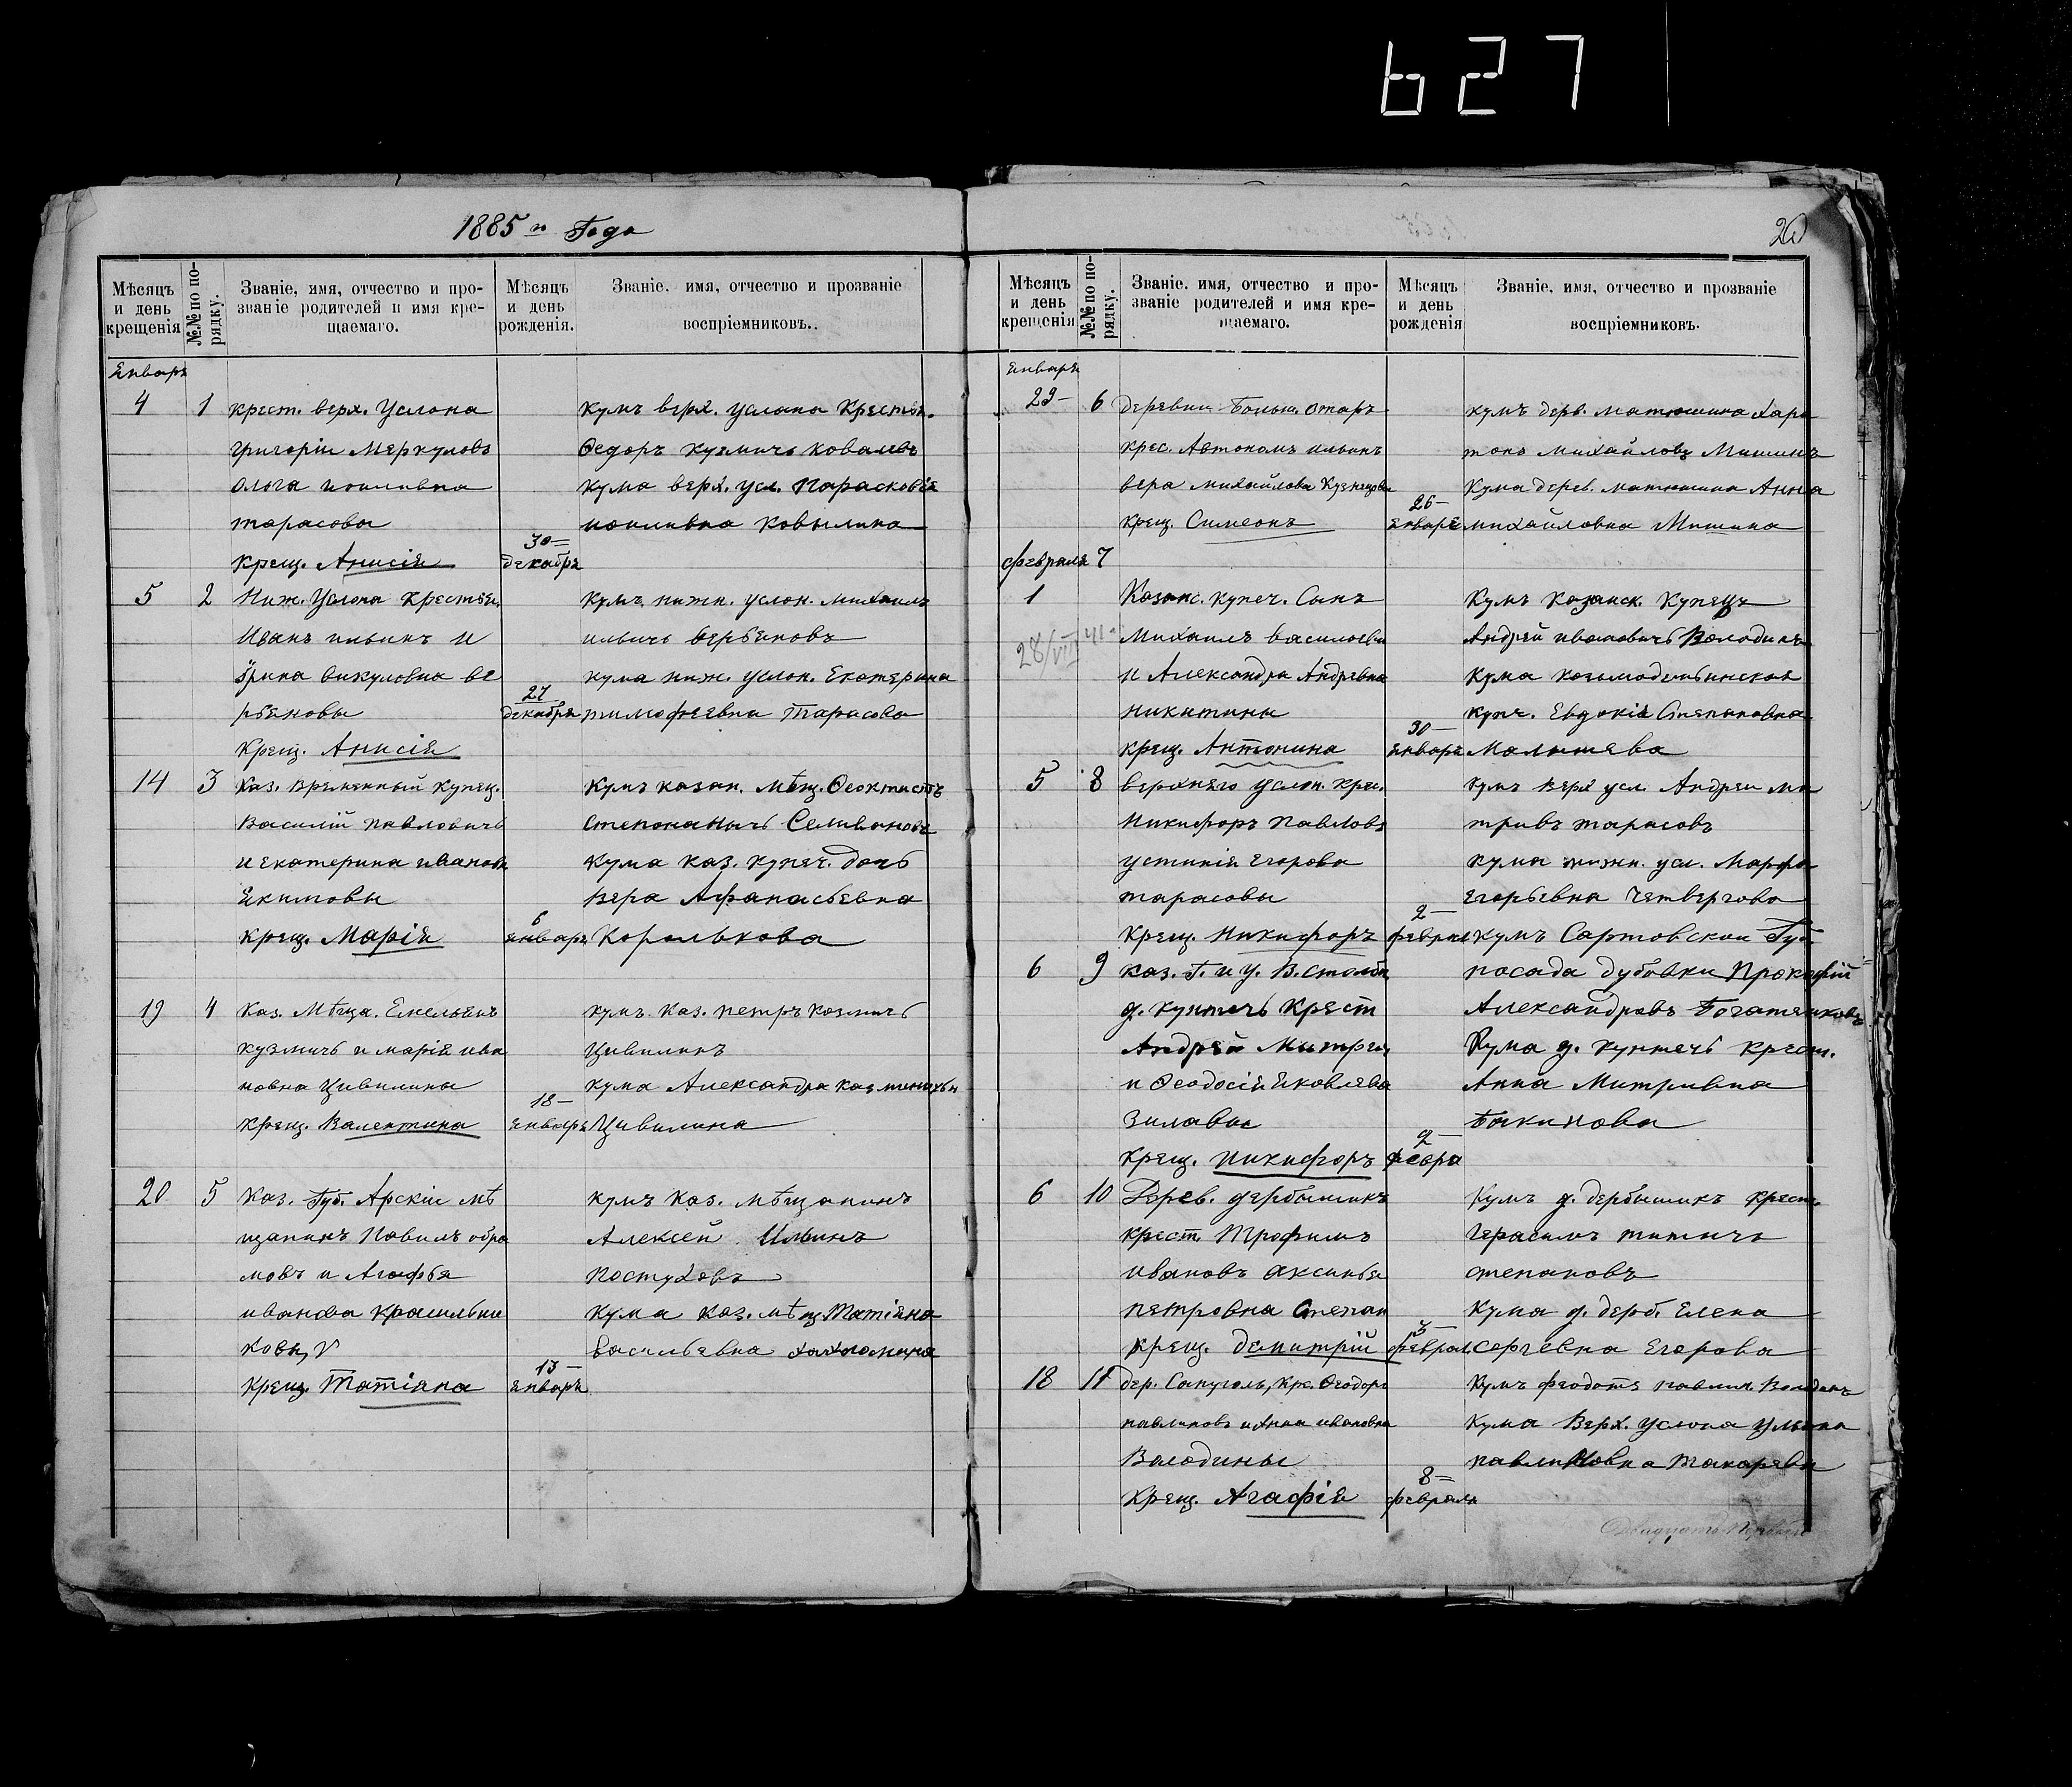 627
1885 го Года
Мѣсяцъ и день крещенія
№№ по порядку.
Званіе, имя, отчество и прозваніе родителей и имя крещаемаго.
Мѣсяцъ и день рожденія.
Званіе. имя, отчество и прозваніе воспріемниковъ..
Январь
4 1 крест. верх. Услона
Григоріи Меркуловъ
Олга
тарасовы
крещ. Анисія
30 декабря
кумъ верх. услона крестья.
Ѳедоръ кузмичь ковалевъ
кума верх. усл. Парасковія
ковылина
5 2 Ниж. Услона крестья.
Иванъ ильинъ и
ѳрина викуловна ве
рьяновы
Крещ. Анисія
27 декабря
кумъ нижн. услон. михаилъ
ильичь верьяновъ
кума ниж. услон. Екатерина
тимофѣевна тарасова
14 3 Каз. временный купец.
Василій павловичь
и екатерина иванов
Екимовы
крещ. Марія
6 январ
кумъ казан. мѣщ. Ѳеоктистъ
Селивановъ
кума каз. купеч. дочь
вера Афанасьевна
Королькова
19 4 Каз. мѣща. Емельянъ
кузмичь и марія ива
новна Цивилины
крещ. Валентина
18 январ
кумъ каз. петръ козмичь
Цивилинъ
кума Александра
Цивилина
20 5 Каз. Губ. Арскіи мѣ
щанинъ Павилъ обра
мовъ и Агафья
иванова красильни
ковы
Крещ. Татіяна
13 январь
кумъ каз. мѣщанинъ
Алексей Ильинъ
постуховъ
кума каз. мѣщ. Татіяна
васильевна
20
Мѣсяцъ и день крещенія
№№ по порядку.
Званіе. имя, отчество и прозваніе родителей и имя крещаемаго.
Мѣсяцъ и день рожденія
Званіе, имя, отчество и прозваніе воспріемниковъ.
Января
29 6 деревни Больш. отаръ
крес. Автономъ ильинъ
вера михайлова Кузнецовы
крещ. Симеонъ
26 январе
кумъ дерв. матюшина Хари
тонъ михайловъ Мишинъ
кума дерев. матюшина Анна
михайловна Мишина
февраля 7
1 Казанс. купеч. Сынъ
Михаилъ василоеви
и Александра Андревна
никитины
крещ. Антонина
28/VIII
30 январе
Кумъ казанск. купецъ
Андрей ивановичь Володинъ
Кума козьмодемьянская
купч. Евдокія Степановна
Малышева
5 8 верхняго услон. крес.
Никифоръ павловъ
устинія егорова
тарасовы
крещ. никифоръ
2 феврал
кумъ верх усл. Андреи ми
тривъ тарасовъ
кума нижн. усл. Марфа
егорьевна четвергова
6 9 каз. Г. и У. В. столби
д. кунтечь крест
Андрей Митрев
и Ѳеодосія яковлева
зилавы
крещ. никифоръ
2 февра
кумъ Сартовскои Губ
посада дубовки Прокофій
Александровъ Богатенковъ
Кума д. кунтечь крест.
Анна Митривна
Бакинова
6 10 Дерев. дербышикъ
крест. Трофимъ
ивановъ аксинья
петровна Степан
крещ. демитрій
3 феврал
кумъ д. дербышикъ крест.
герасимъ титычь
степановъ
кума д. дерб. елена
сергевна Егорова
18 11 дер. Сапуголь, Крс. Ѳеодоръ
павлиновъ и Анна ивановна
Володины
крещ. Агафія
8 февраля
кумъ феодотъ павлин. Володинъ
кума верх. услона ульяна
павлиновна токарева
Двадцать первый